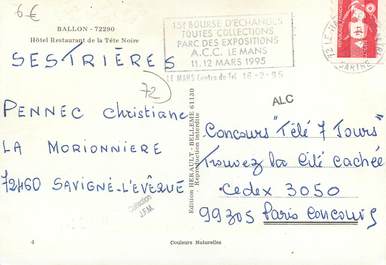 6 €
BALLON - 72290
Hôtel Restaurant de la Tête Noire
15e BOURSE D'ECHANGES
TOUTES COLLECTIONS
PARC DES EXPOSITIONS
A.C.C. LE MANS
11.12 MARS 1995
LE MANS Centre de Tri 16-2-95
SARTHE
SESTRIÈRES
72
ALC
PENNEC Christiane
LA MORIONNIERE
72460 SAVIGNÉ-L'EVÊQUE
Edition HERAULT - BELLEME 61130
Reproduction interdite
Collection
J.F.M.
Concours "Télé 7 Jours"
Trouvez la Cité cachée
Cedex 3050
99305 Paris Concours
4
Couleurs Naturelles